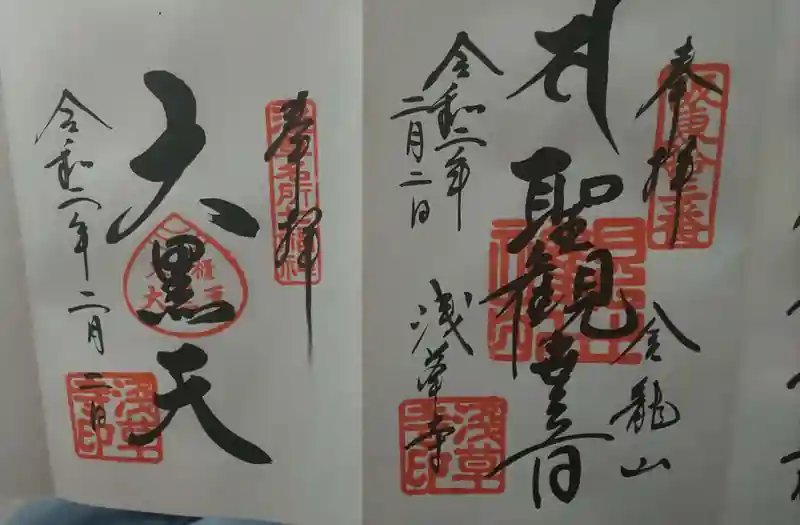 奉拝
金龍山
聖観世音
浅草寺
令和二年
二月二日
奉拝
大黒天
令和二年二月二日
浅草寺印
浅草寺印